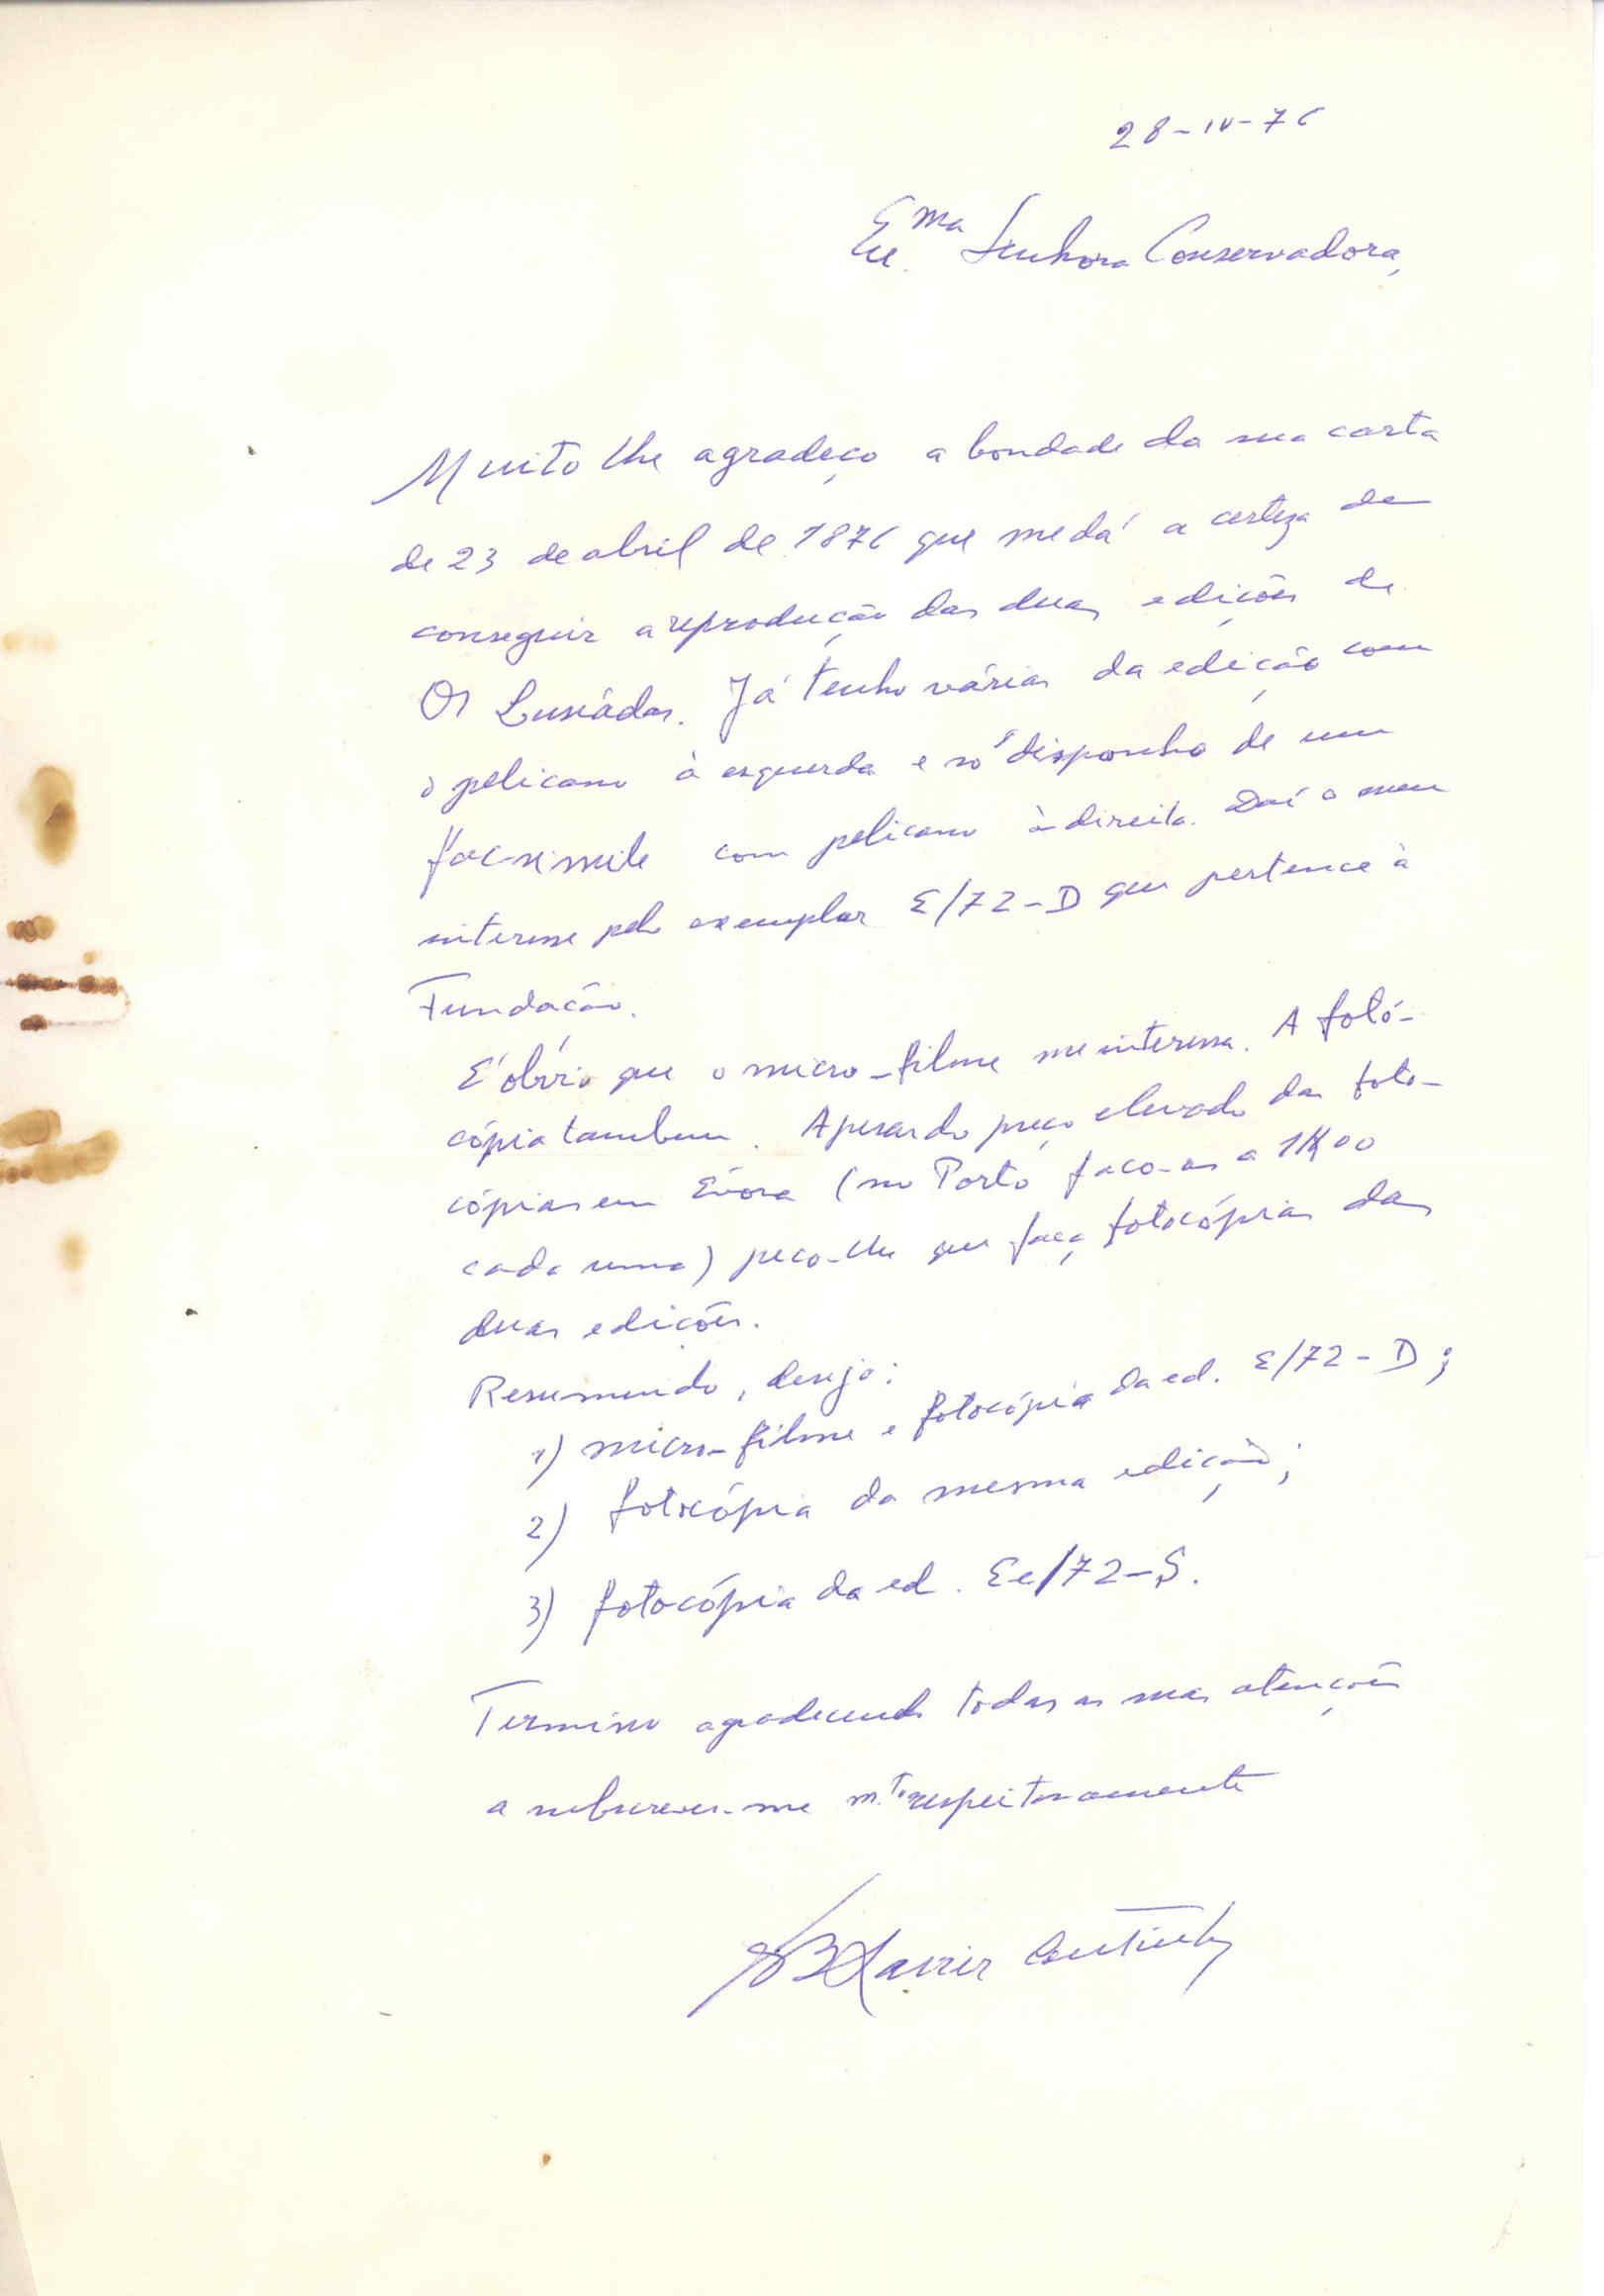 28-IV-76
Exma Senhora Conservadora,
Muito lhe agradeço a bondade da sua carta
de 23 de abril de 1876 que me dá a certeza de
conseguir a reprodução das duas edições de
Os Lusíadas. Já tenho várias da edição com
o pelicano à esquerda e só disponho de um
facsimile com pelicano à direita. Daí o meu
interesse pelo exemplar E/72-D que pertence à
Fundação.
É óbvio que o micro-filme me interessa. A fotó-
cópia tambem. Apesar do preço elevado das foto-
cópias em Évora (no Porto faço-as a 1$00
cada uma) peço-lhe que faça fotocópias das
duas edições.
Resumindo, desejo:
1) micro-filme e fotocópia da ed. E/72-D;
2) fotocópia da mesma edição;
3) fotocópia da ed. Ee/72-S.
Termino agradecendo todas as suas atenções
a subscrever-me m.to respeitosamente
B Xavier Coutinho